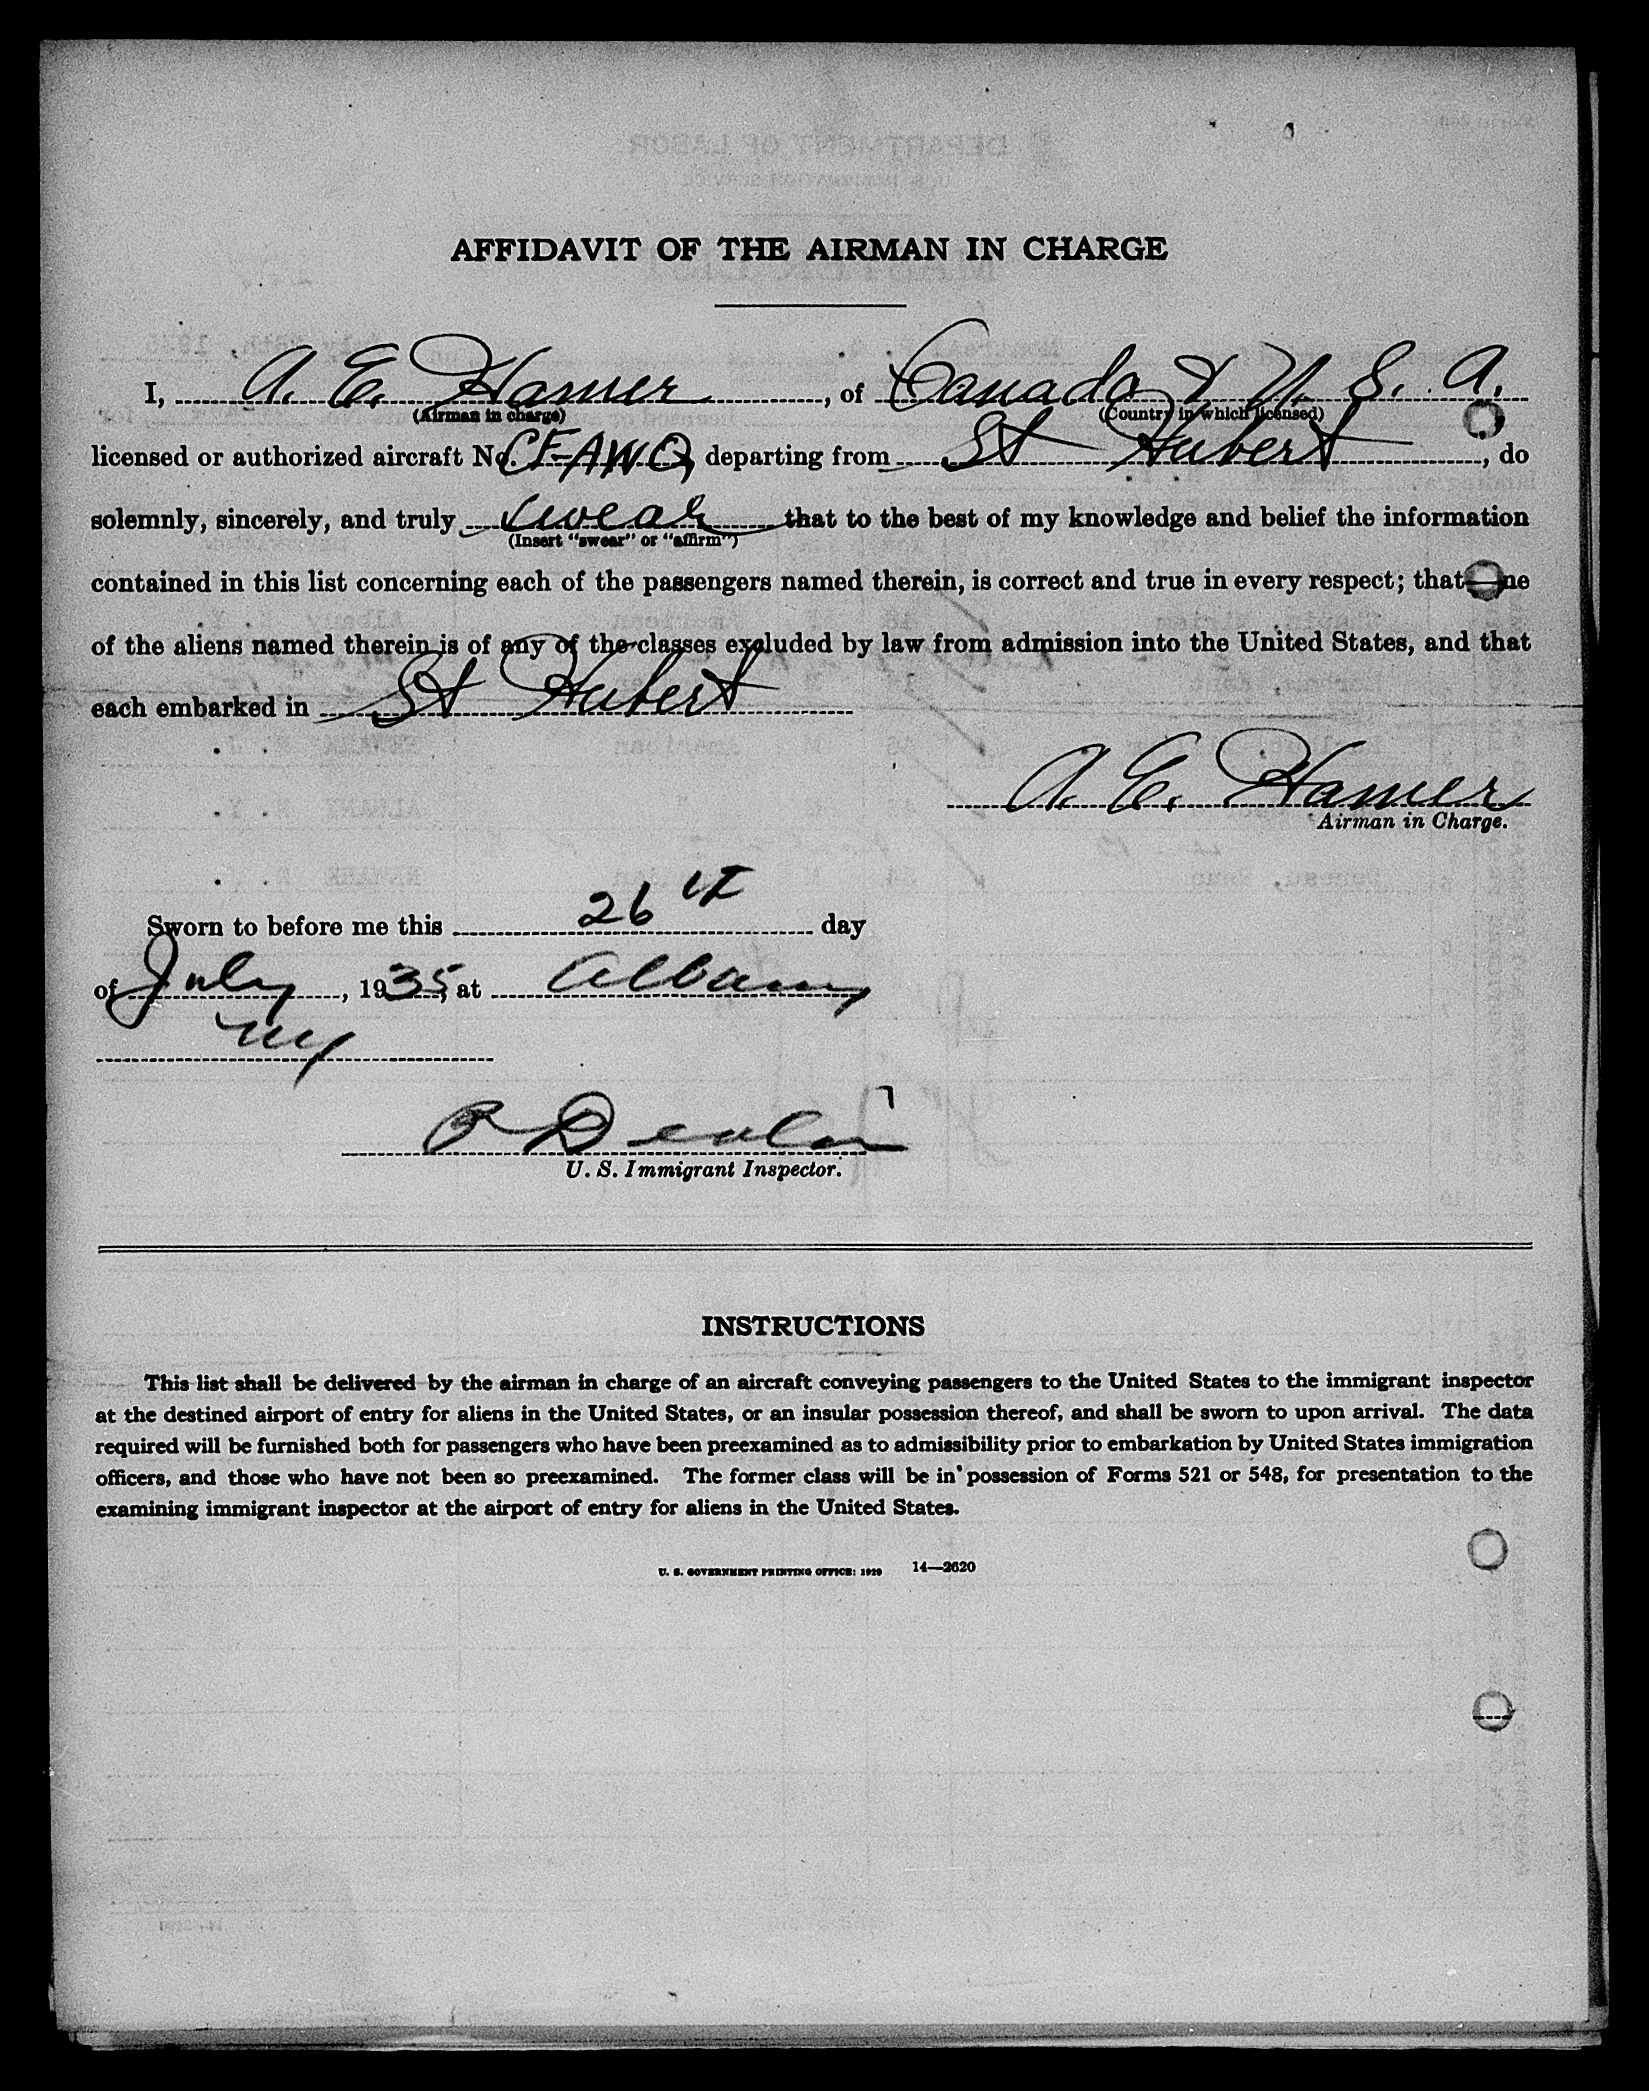 AFFIDAVIT OF THE AIRMAN IN CHARGE
I, A. E. Hamer, of Canada & U. S. A.
(Airman in charge) (Country in which licensed)
licensed or authorized aircraft No. CF-AWQ, departing from St Hubert, do
solemnly, sincerely, and truly swear that to the best of my knowledge and belief the information
(Insert "swear" or "affirm")
contained in this list concerning each of the passengers named therein, is correct and true in every respect; that
of the aliens named therein is of any of the classes excluded by law from admission into the United States, and that
each embarked in St Hubert
A. E. Hamer
Airman in Charge.
Sworn to before me this 26th day
of July, 1935, at Albany
NY
U. S. Immigrant Inspector.
INSTRUCTIONS
This list shall be delivered by the airman in charge of an aircraft conveying passengers to the United States to the immigrant inspector
at the destined airport of entry for aliens in the United States, or an insular possession thereof, and shall be sworn to upon arrival. The data
required will be furnished both for passengers who have been preexamined as to admissibility prior to embarkation by United States immigration
officers, and those who have not been so preexamined. The former class will be in possession of Forms 521 or 548, for presentation to the
examining immigrant inspector at the airport of entry for aliens in the United States.
U. S. GOVERNMENT PRINTING OFFICE: 1929 14—2620